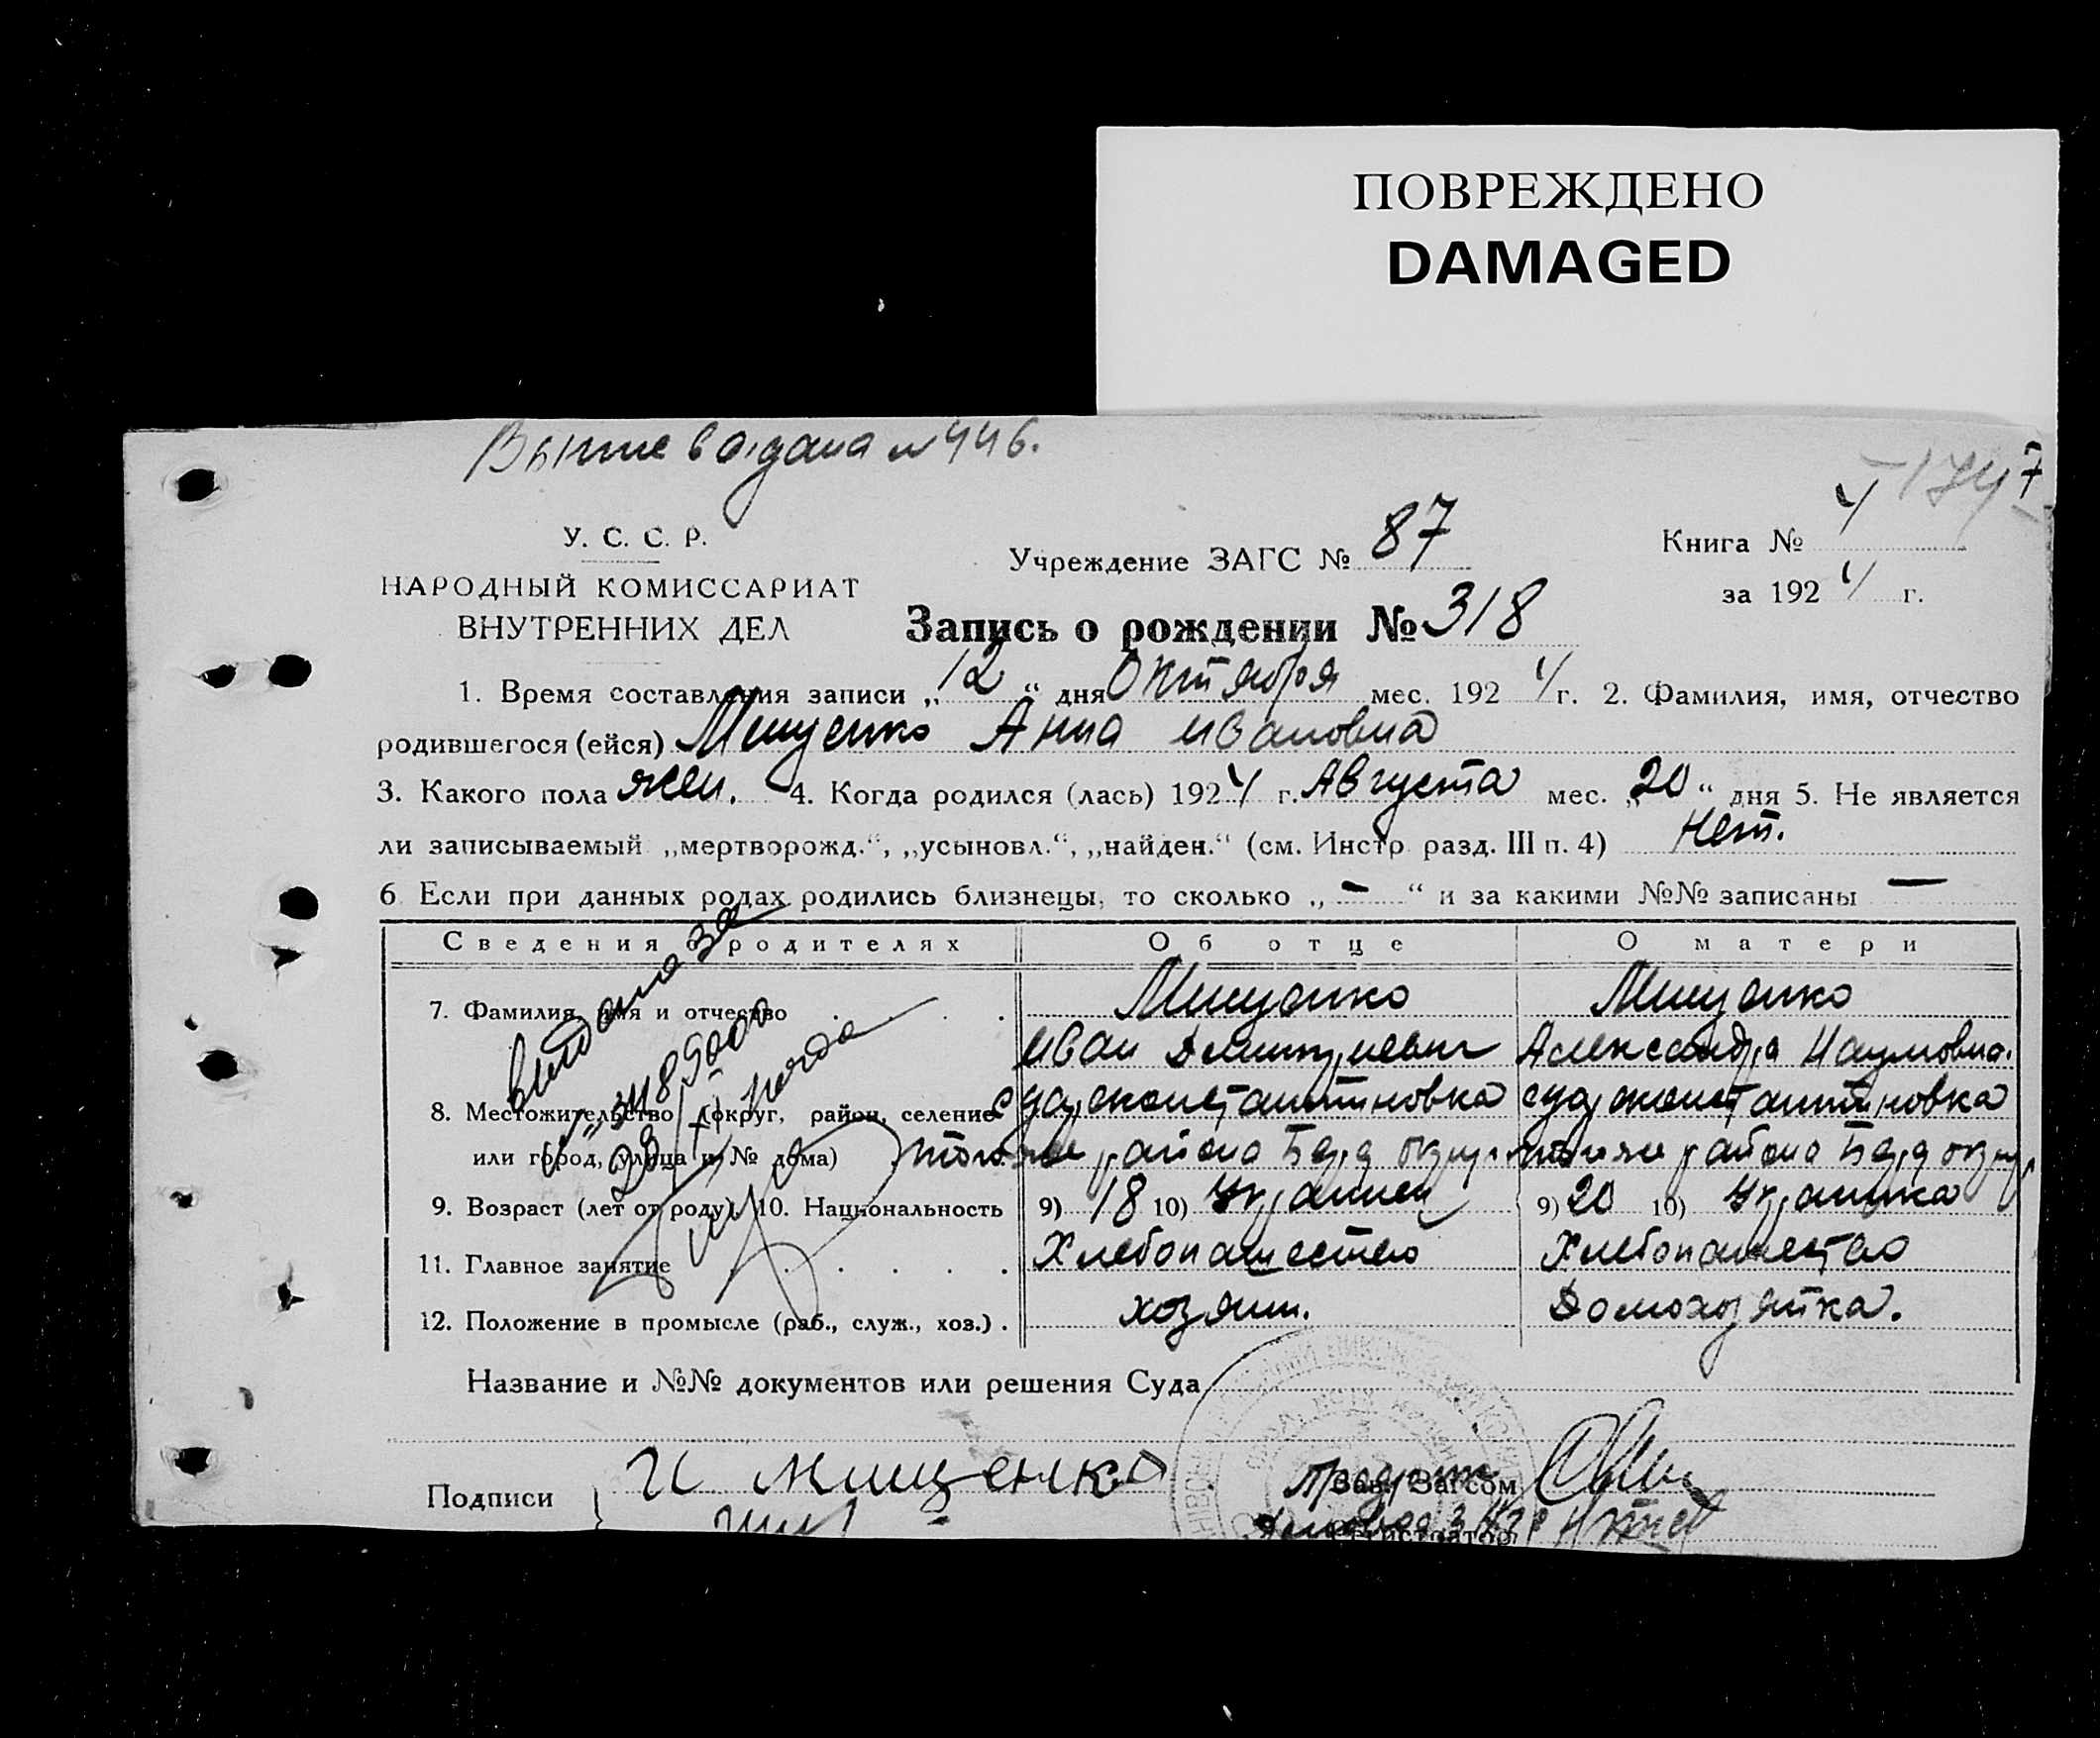 ПОВРЕЖДЕНО
DAMAGED
№ 446.
7
У. С. С. Р.
НАРОДНЫЙ КОМИССАРИАТ
ВНУТРЕННИХ ДЕЛ
Учреждение ЗАГС № 87
Книга № 4
за 1924 г.
Запись о рождении № 318
1. Время составления записи „12“ дня Октября мес. 1924 г. 2. Фамилия, имя, отчество
родившегося (ейся) Мищенко Анна Ивановна
3. Какого пола жен. 4. Когда родился (лась) 1924 г. Августа мес. „20“ дня 5. Не является
ли записываемый „мертворожд.“, „усыновл.“, „найден.“ (см. Инстр. разд. III п. 4) Нет.
6 Если при данных родах родились близнецы, то сколько „-“ и за какими №№ записаны —
Сведения о родителях Об отце О матери
7. Фамилия, имя и отчество Мищенко Мищенко
Иван Александра Наумовна.
8. Местожительство (округ, район, селение
или город, улица и № дома) того же района Берд округ того же района Берд округ
9. Возраст (лет от роду). 10. Национальность 9) 18 10) Украинец 9) 20 10) Украинка
11. Главное занятие Хлебопашество Хлебопашество
12. Положение в промысле (раб., служ., хоз.) хозяин. Домохозяйка.
Название и №№ документов или решения Суда
Подписи И Мищенко Зав. Загсом
Регистратор
выдана